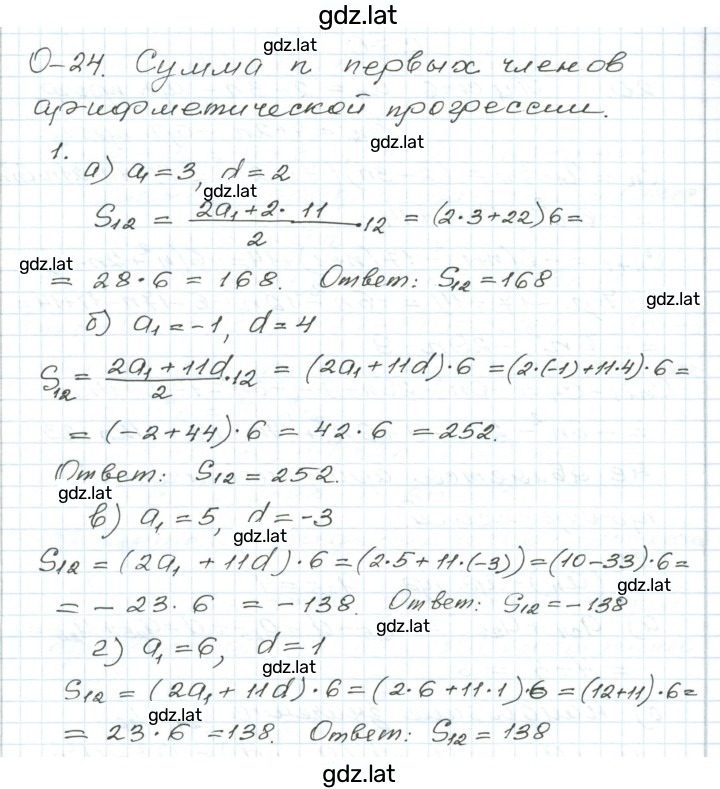 gdz.lat
gdz.lat
О-24. Сумма n первых членов
арифметической прогрессии.
gdz.lat
1.
а) a₁ = 3, d = 2
gdz.lat
S₁₂ = (2a₁ + 2 · 11)/2 · 12 = (2·3+22)6 =
gdz.lat
= 28 · 6 = 168. Ответ: S₁₂ = 168
gdz.lat
б) a₁ = -1, d = 4
S₁₂ = (2a₁ + 11d)/2 · 12 = (2a₁ + 11d) · 6 = (2·(-1)+11·4)·6 =
= (-2+44) · 6 = 42 · 6 = 252.
Ответ: S₁₂ = 252.
gdz.lat
в) a₁ = 5, d = -3
gdz.lat
S₁₂ = (2a₁ + 11d) · 6 = (2·5 + 11·(-3)) = (10-33)·6 =
gdz.lat
= - 23 · 6 = -138. Ответ: S₁₂ = -138
gdz.lat
г) a₁ = 6, d = 1
gdz.lat
S₁₂ = (2a₁ + 11d) · 6 = (2·6 + 11·1)·6 = (12+11)·6 =
gdz.lat
= 23 · 6 = 138. Ответ: S₁₂ = 138
gdz.lat